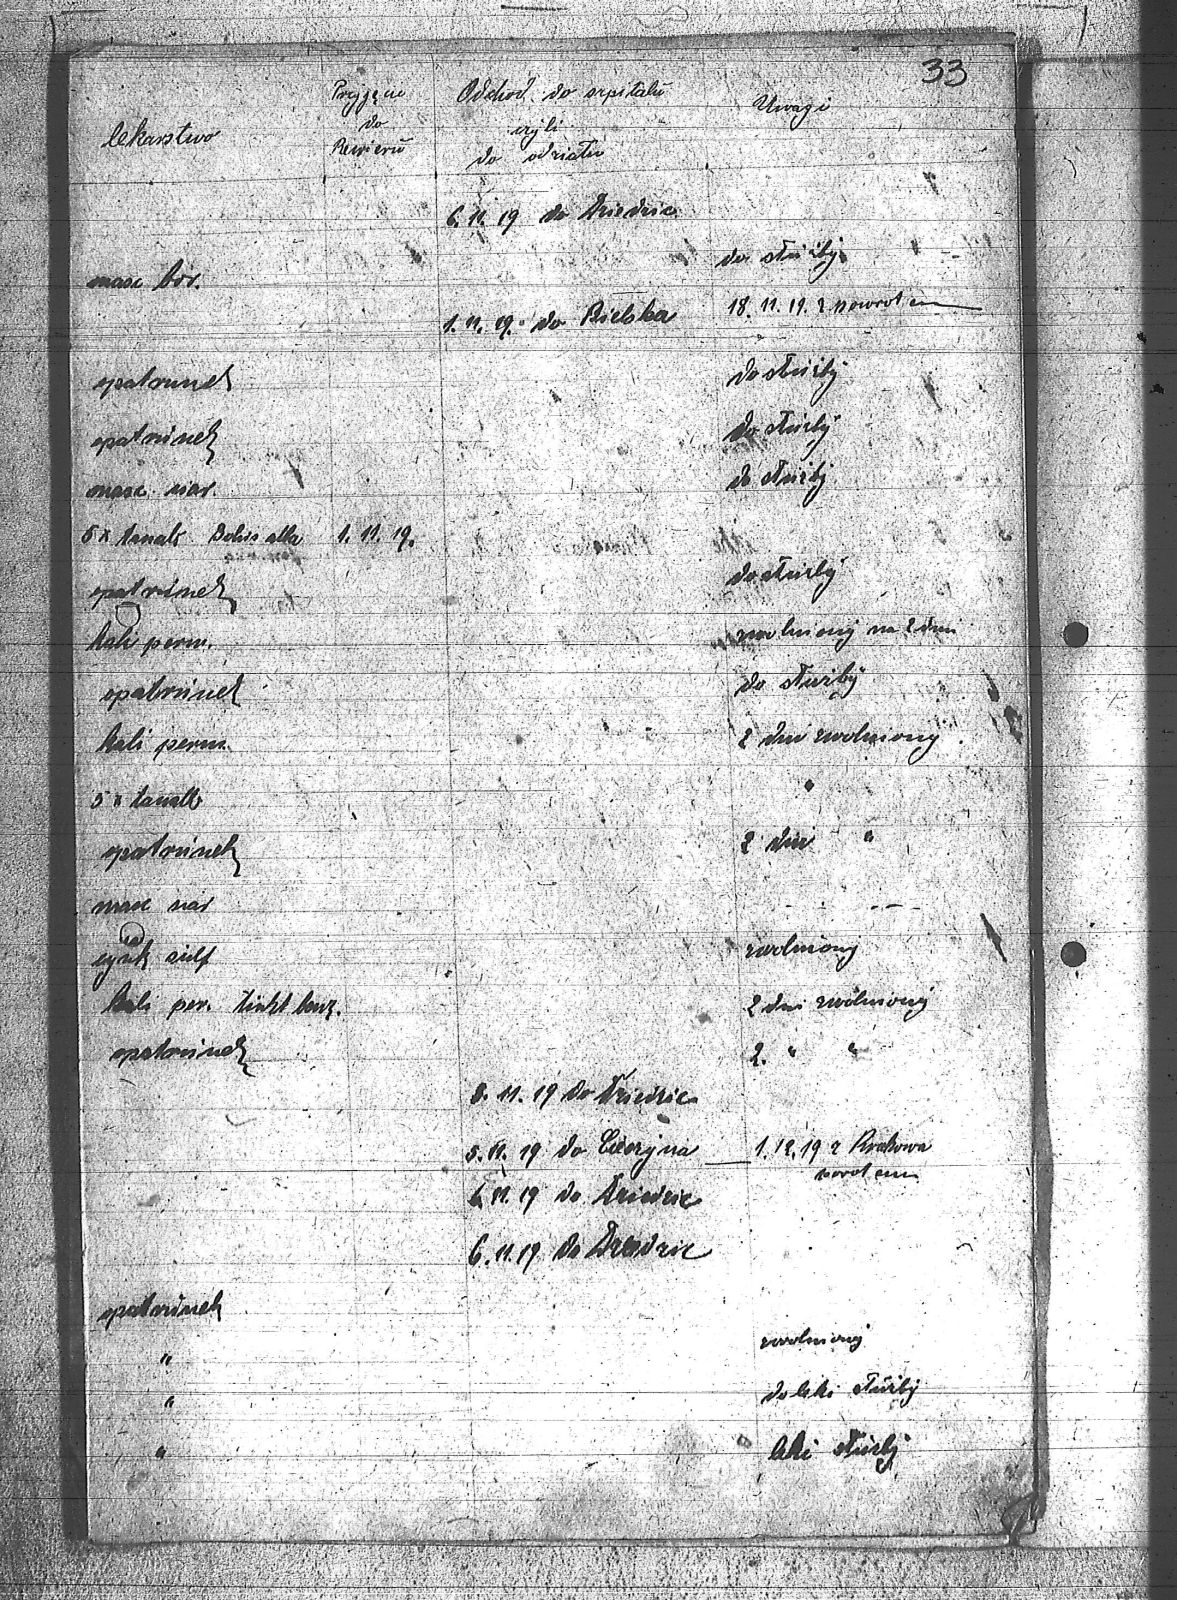 33
lekarstwo
Przyjęcie do Rewieru
Odchod do szpitalu czyli do odziału
Uwagi
6. 11. 19 do Dziedzic
masc bor. do służby
1. 11. 19. do Bielska 18. 11. 19. z powrotem
opatrunek do służby
opatrunek do służby
masc siar. do służby
5 x tanalb Bolus alba 1. 11. 19.
opatrunek do służby
kali perm. zwolniony na 2 dni
opatrunek do służby
kali perm. 2 dni zwolniony
5 x tanalb "
opatrunek 2 dni "
masc siar
cynk zwolniony
kali per. tinkt benz. 2 dni zwolniony
opatrunek 2. " "
3. 11. 19 do Dziedzic
5. 11. 19 do Cieszyna 1. 12. 19 z Krakowa
powrotem
6. 11. 19 do Dziedzic
6. 11. 19. do Dziedzic
opatrunek
" zwolniony
" do leki służby
" leki służby